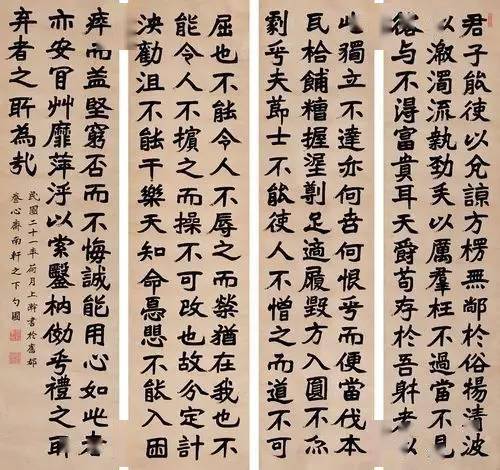 君子能使以兊諒方楞無鄙於俗揚清波
以激濁流執勁矢以厲羣枉不過當不見
容与不得富貴耳天爵苟存於吾躰者以
此獨立不達亦何咎何恨乎而便當伐本
瓦枱餔糟握埿剸足適履毀方入圓不亦
劇乎夫節士不能使人不憎之而道不可
屈也不能令人不辱之而榮猶在我也不
能令人不擯之而操不可改也故分定計
決勸沮不能干樂天知命憂懼不能入困
瘁而益堅窮否而不悔誠能用心如此者
亦安肎艸靡萍浮以索鑿枘俲乎禮之所
弃者之所為哉
民國二十一年荷月上澣書於舊都
養心齋南軒之下勺圃